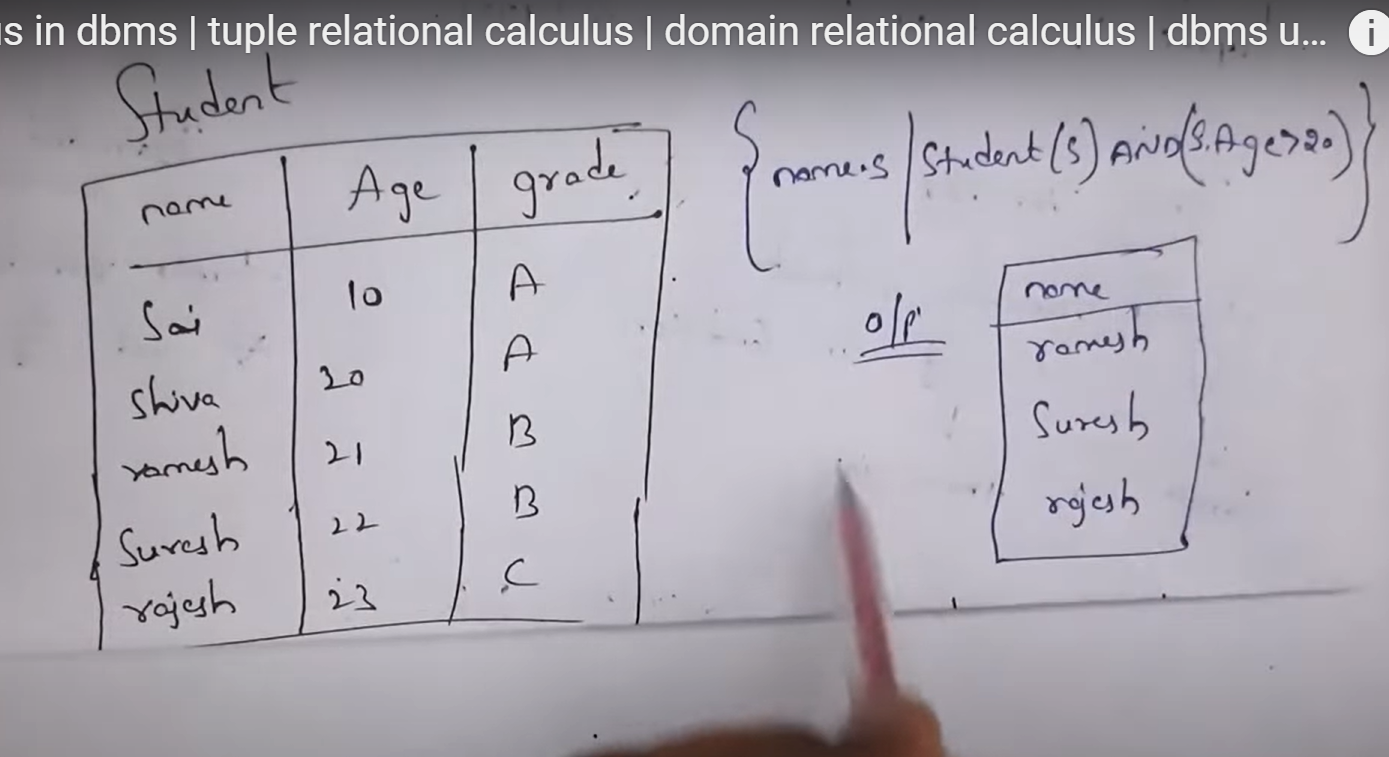 s in dbms | tuple relational calculus | domain relational calculus | dbms u... i
Student
name Age grade
Sai 10 A
Shiva 20 A
ramesh 21 B
Suresh 22 B
rajesh 23 C
{name.s | Student(s) AND (S.Age>20)}
o/p
name
ramesh
Suresh
rajesh